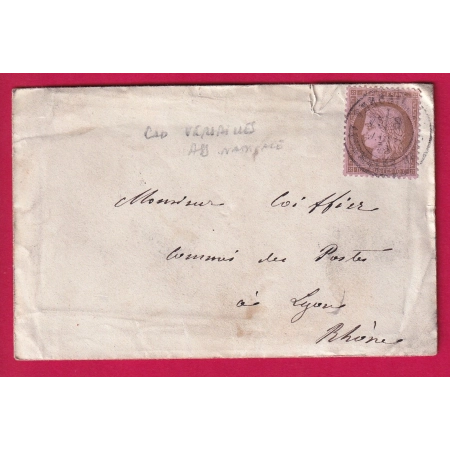 Cad
Monsieur Coiffier
Commis des Postes
à Lyon
Rhône